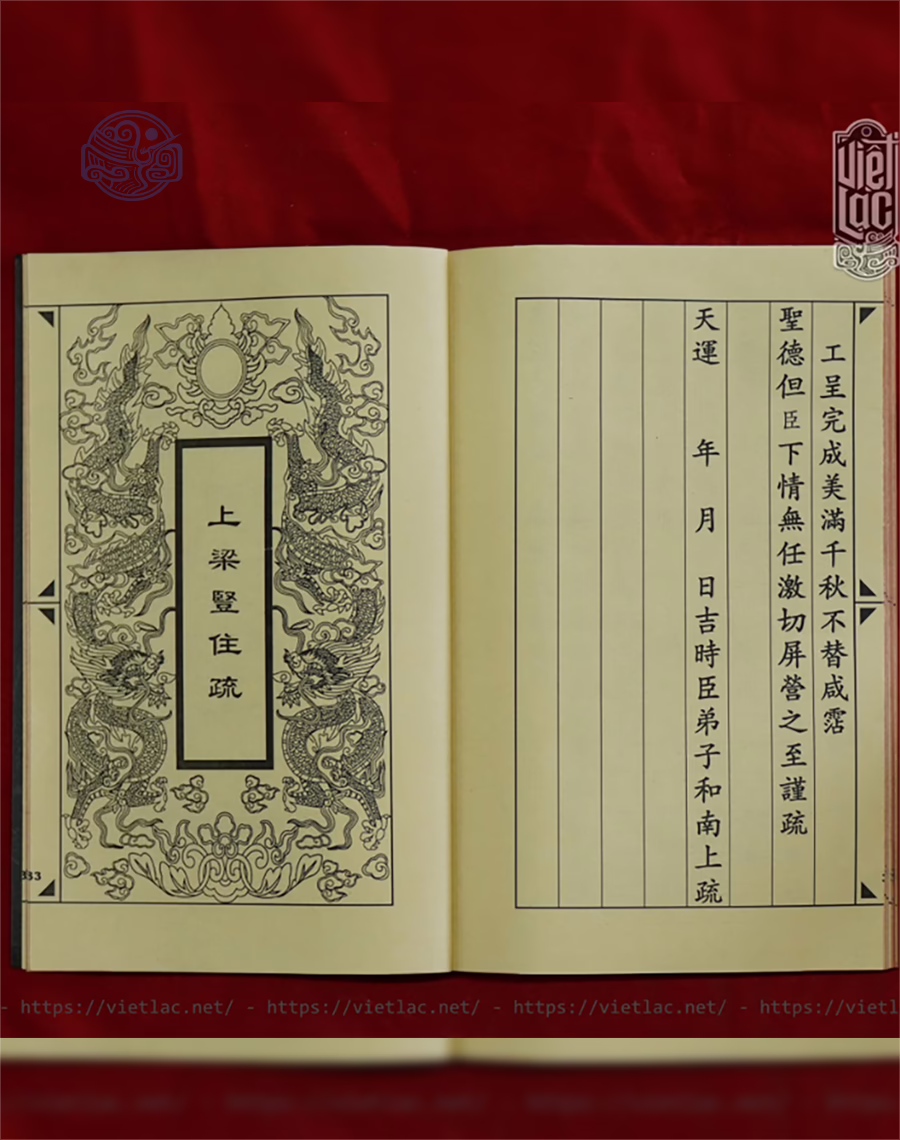 Việt
Lạc
工呈完成美滿千秋不替咸霑
聖德但臣下情無任激切屏營之至謹疏
天運 年 月 日吉時臣弟子和南上疏
上梁豎住疏
333
- https://vietlac.net/ - https://vietlac.net/ - https://vietlac.net/ - https://vietl